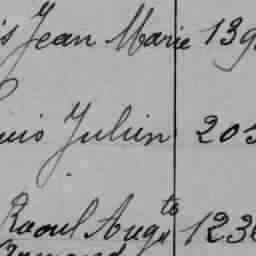 is Jean Marie 139
uis Julien 205
Raoul Augte 1236